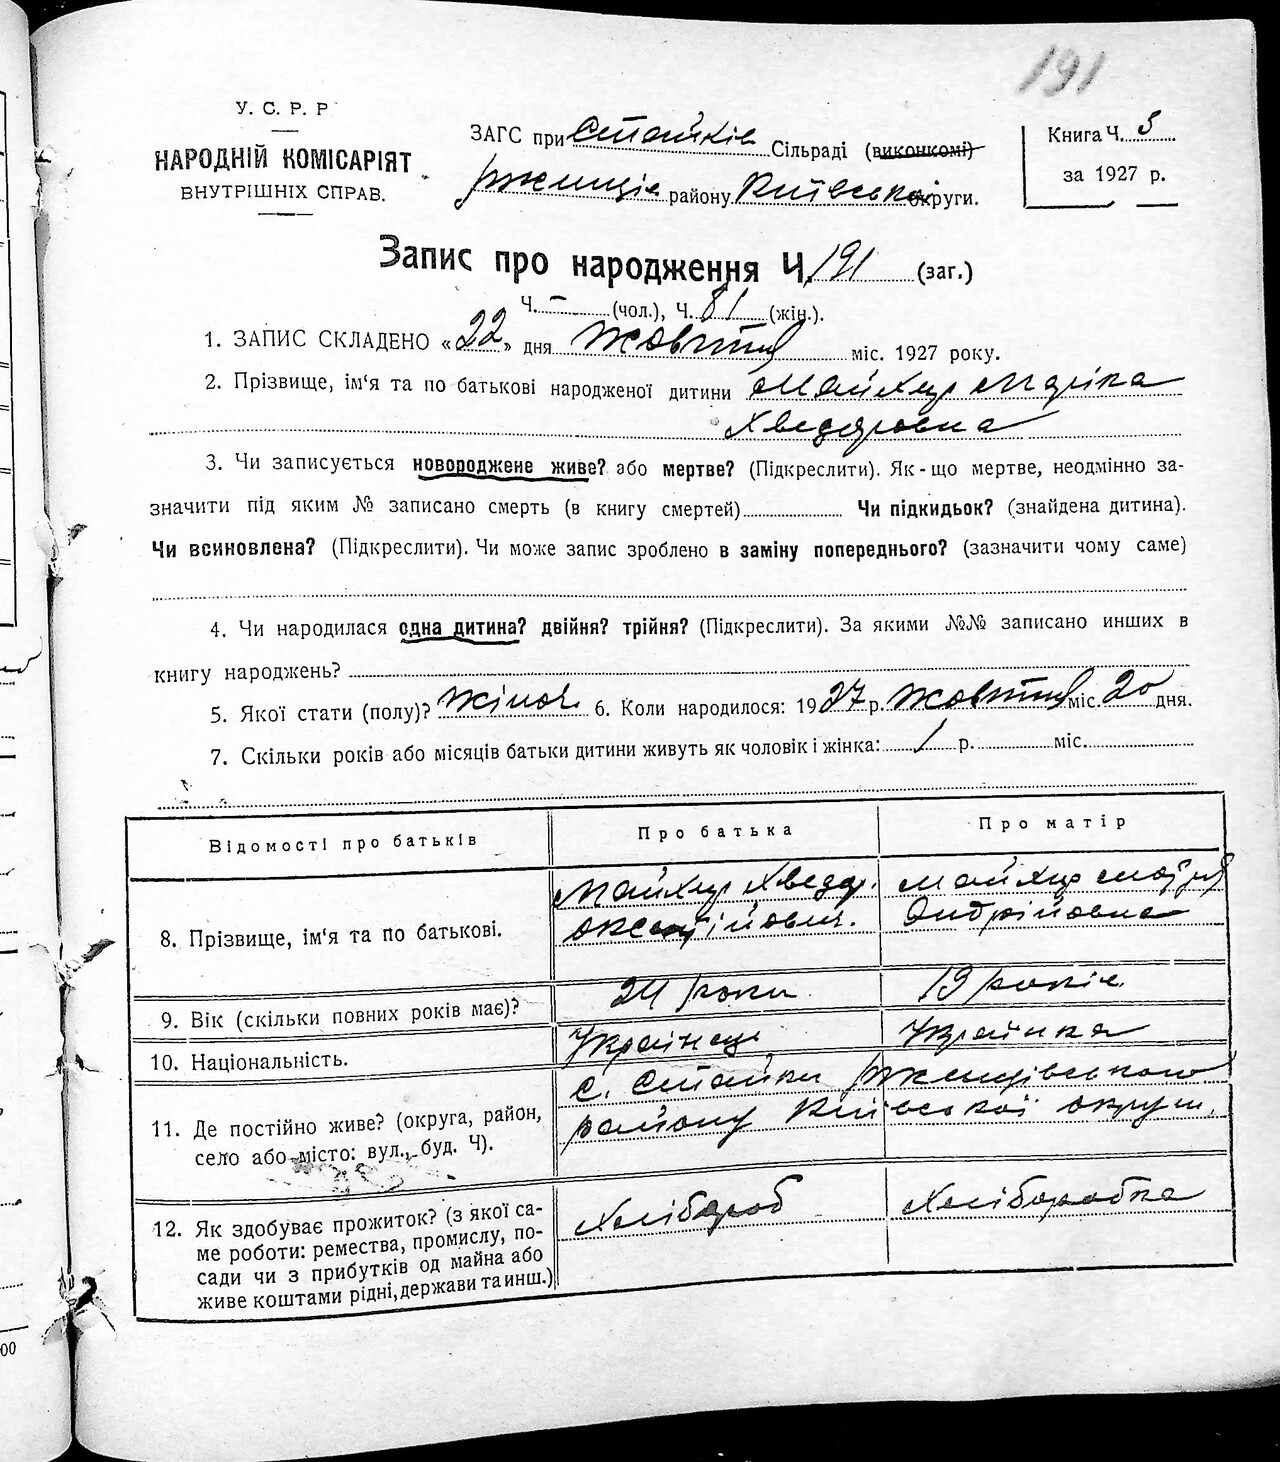 191
У. С. Р. Р
НАРОДНІЙ КОМІСАРІЯТ
ВНУТРІШНІХ СПРАВ.
ЗАГС при Стайків Сільраді (виконкомі)
Ржищів району Київської округи.
Книга Ч. 5
за 1927 р.
Запис про народження Ч. 191 (заг.)
Ч. – (чол.), Ч. 81 (жін.).
1. ЗАПИС СКЛАДЕНО «22» дня Жовтня міс. 1927 року.
2. Прізвище, ім'я та по батькові народженої дитини Майхер Маріка
Хведоровна
3. Чи записується новороджене живе? або мертве? (Підкреслити). Як-що мертве, неодмінно за-
значити під яким № записано смерть (в книгу смертей) Чи підкидьок? (знайдена дитина).
Чи всиновлена? (Підкреслити). Чи може запис зроблено в заміну попереднього? (зазначити чому саме)
4. Чи народилася одна дитина? двійня? трійня? (Підкреслити). За якими №№ записано инших в
книгу народжень?
5. Якої стати (полу)? жіноч. 6. Коли народилося: 1927 р. Жовтня міс. 20 дня.
7. Скільки років або місяців батьки дитини живуть як чоловік і жінка: 1 р. міс.
Відомості про батьків
Про батька
Про матір
8. Прізвище, ім'я та по батькові.
Майхер Хведор.
Оксентійович.
Майхер
Андрійовна
9. Вік (скільки повних років має)?
24 роки
19 років
10. Національність.
Українець
Українка
11. Де постійно живе? (округа, район,
село або місто: вул., буд. Ч).
с. Стайки Ржищівського
району Київської округи.
12. Як здобуває прожиток? (з якої са-
ме роботи: ремества, промислу, по-
сади чи з прибутків од майна або
живе коштами рідні, держави та инш.)
Хлібороб
Хліборобка
00